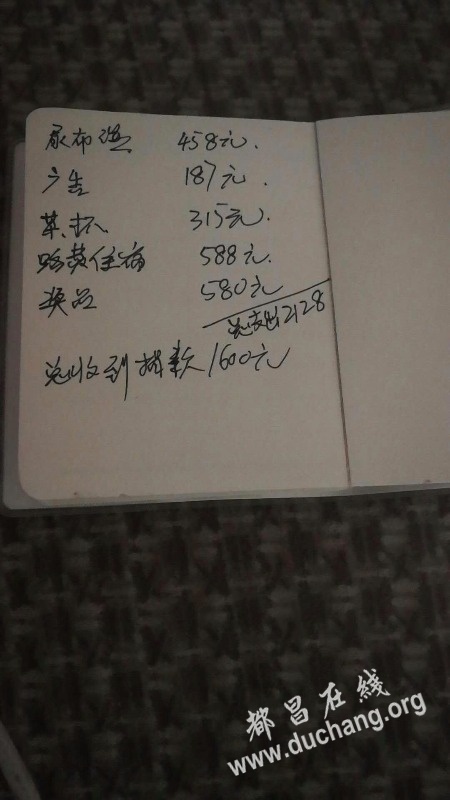 尿布湿 458元.
广告 187元.
茶杯 315元.
路费住宿 588元.
奖品 580元
总支出2128
总收到捐款1600元
都昌在线
www.duchang.org